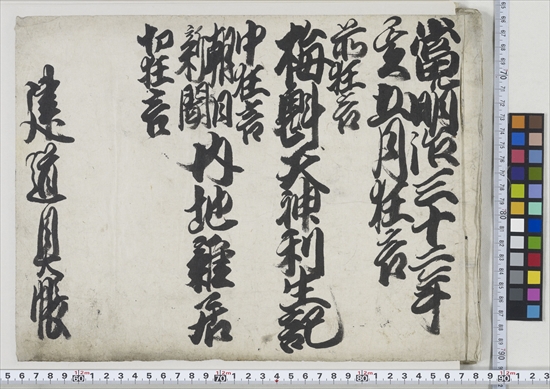 當ル明治三十二年
亥五月狂言
前狂言
梅魁天神利生記
中狂言
朝日
新聞
内地雜居
切狂言
建道具帳